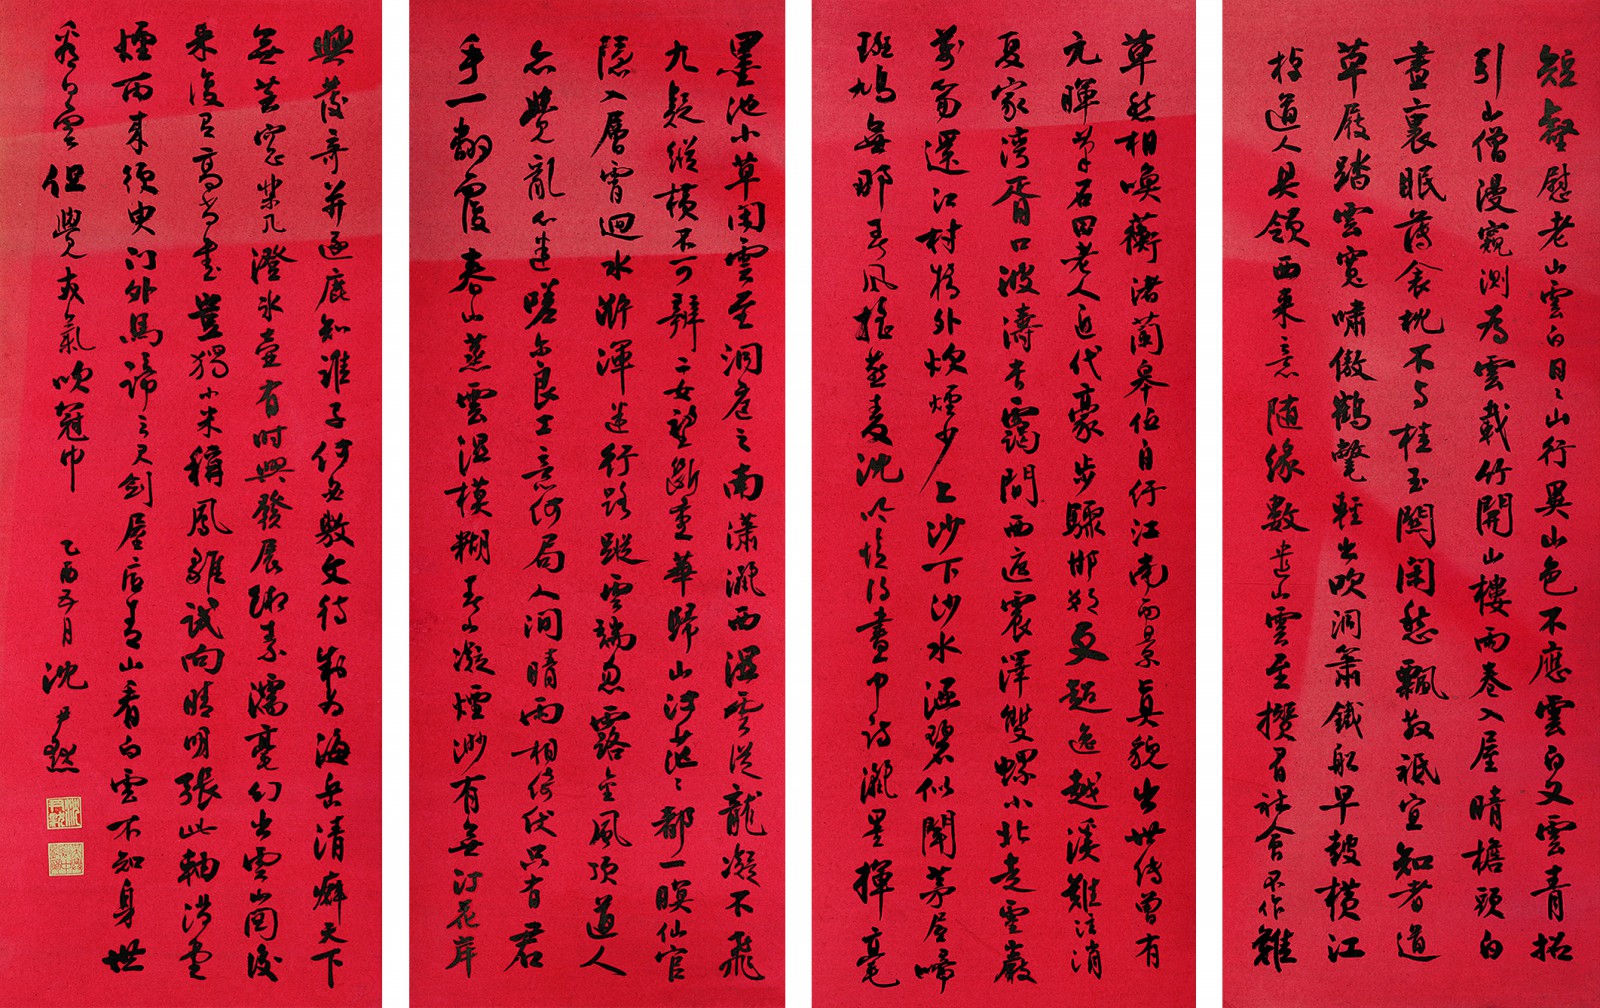 短壑慰老山雲白日日山行異山色不應雲白又雲青拓
引山僧漫窺測為雲載竹開山樓雨卷入屋晴檐頭白
晝裏眠蒲衾枕不與桂玉關閒愁飄散祗宜知者道
草屐踏雲寬嘯傲鶴氅輕出吹洞簫鐵船早鼓橫江
枝道人具領西來意隨緣數畫山雲至攢眉社會不作難
草然相喚蘅渚蘭皋伍自行江南雨景真貌出世傳曾有
元暉筆石田老人近代豪步驟邯鄲文超逸越溪難注消
夏家灣胥口波濤靄間西迤震澤雙螺小北走靈巖
萬笏還江村橋外炊煙少上沙下沙水涵碧似聞茅屋啼
斑鳩無那春風搖蕙麥沈吟憶得畫中詩灑墨揮毫
墨池小草閒雲至洞庭之南瀟灑西濕雲從龍凝不飛
九疑縱橫不可辭二女望斷重華歸山河茫茫都一暝仙官
隱入層霄迴水澌渾迷行路蹤雲端忽露金風頂道人
忘覺亂心迷嗟爾良工意何局人間晴雨相倚伏只看君
手一翻覆春山蒸雲濕模糊春山凝煙渺有無汀花岸
興落奇并逐鹿知誰子何如敷文待制為海岳清癖天下
無芸窗棐几澄冰壺有時興發展緗素濡毫幻出雲山圖後
來復有高尚書豈獨小米稱鳳雛試向晴明張此軸滿堂
煙雨來須臾門外馬蹄三尺劍屋底青山看白雲不知身世
看白雲但覺爽氣吹冠巾 乙酉五月 沈尹默